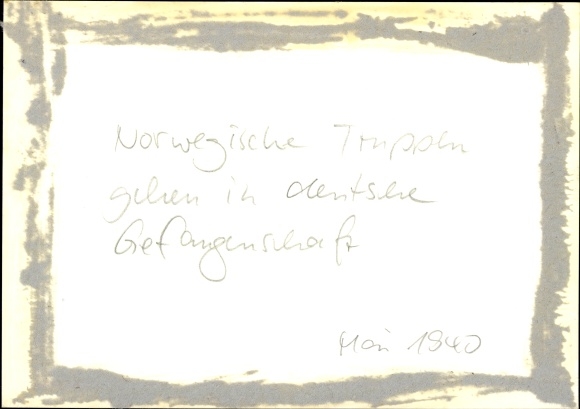 Norwegische Truppen
gehen in deutsche
Gefangenschaft
Mai 1940